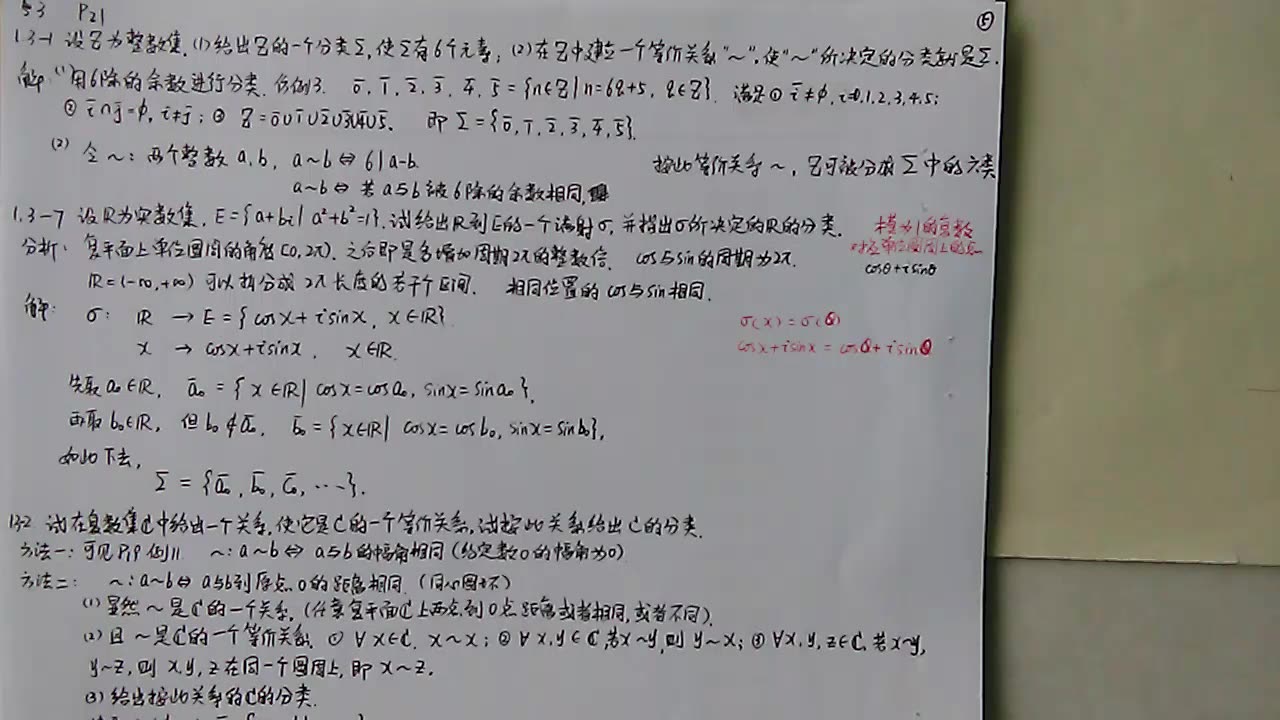 §3 P21
⑤
1.3-1 设Z为整数集.(1)给出Z的一个分类Σ,使Σ有6个元素;(2)在Z中建立一个等价关系"~",使"~"所决定的分类就是Σ.
解:(1)用6除的余数进行分类.仿例3. 0̄,1̄,2̄,3̄,4̄,5̄={n∈Z|n=6q+5, q∈Z}. 满足①ī≠φ, i=0,1,2,3,4,5;
②ī∩j̄=φ, i≠j;③Z=0̄∪1̄∪2̄∪3̄∪4̄∪5̄. 即Σ={0̄,1̄,2̄,3̄,4̄,5̄}.
(2) 令~:两个整数a,b, a~b⇔6|a-b. 按此等价关系~,Z可被分成Σ中的六类
a~b⇔若a与b被6除的余数相同,
1.3-7 设R为实数集,E={a+bi|a²+b²=1}.试给出R到E的一个满射σ,并指出σ所决定的R的分类.
模为1的复数
对应单位圆周上的点
cosθ+isinθ
分析:复平面上单位圆周的角度[0,2π).之后即是多增加周期2π的整数倍. cos与sin的周期为2π.
R=(-∞,+∞)可以拆分成2π长度的若干个区间. 相同位置的cos与sin相同.
解:σ: R→E={cosx+isinx, x∈R}
x→cosx+isinx, x∈R.
σ(x)=σ(θ)
cosx+isinx=cosθ+isinθ
先取a₀∈R, ā₀={x∈R|cosx=cosa₀, sinx=sina₀},
再取b₀∈R, 但b₀∉ā₀, b̄₀={x∈R|cosx=cosb₀, sinx=sinb₀},
如此下去,
Σ={ā₀, b̄₀, c̄₀, ⋯}.
1.3-2 试在复数集C中给出一个关系,使它是C的一个等价关系,试按此关系给出C的分类.
方法一:可见P19例11. ~:a~b⇔a与b的幅角相同(约定数0的幅角为0)
方法二: ~:a~b⇔a与b到原点0的距离相同.(同心圆环)
(1)显然~是C的一个关系.(任意复平面C上两点到0点距离或者相同,或者不同).
(2)且~是C的一个等价关系.①∀x∈C, x~x;②∀x,y∈C,若x~y,则y~x;③∀x,y,z∈C,若x~y,
y~z,则x,y,z在同一个圆周上,即x~z.
(3)给出按此关系的C的分类.